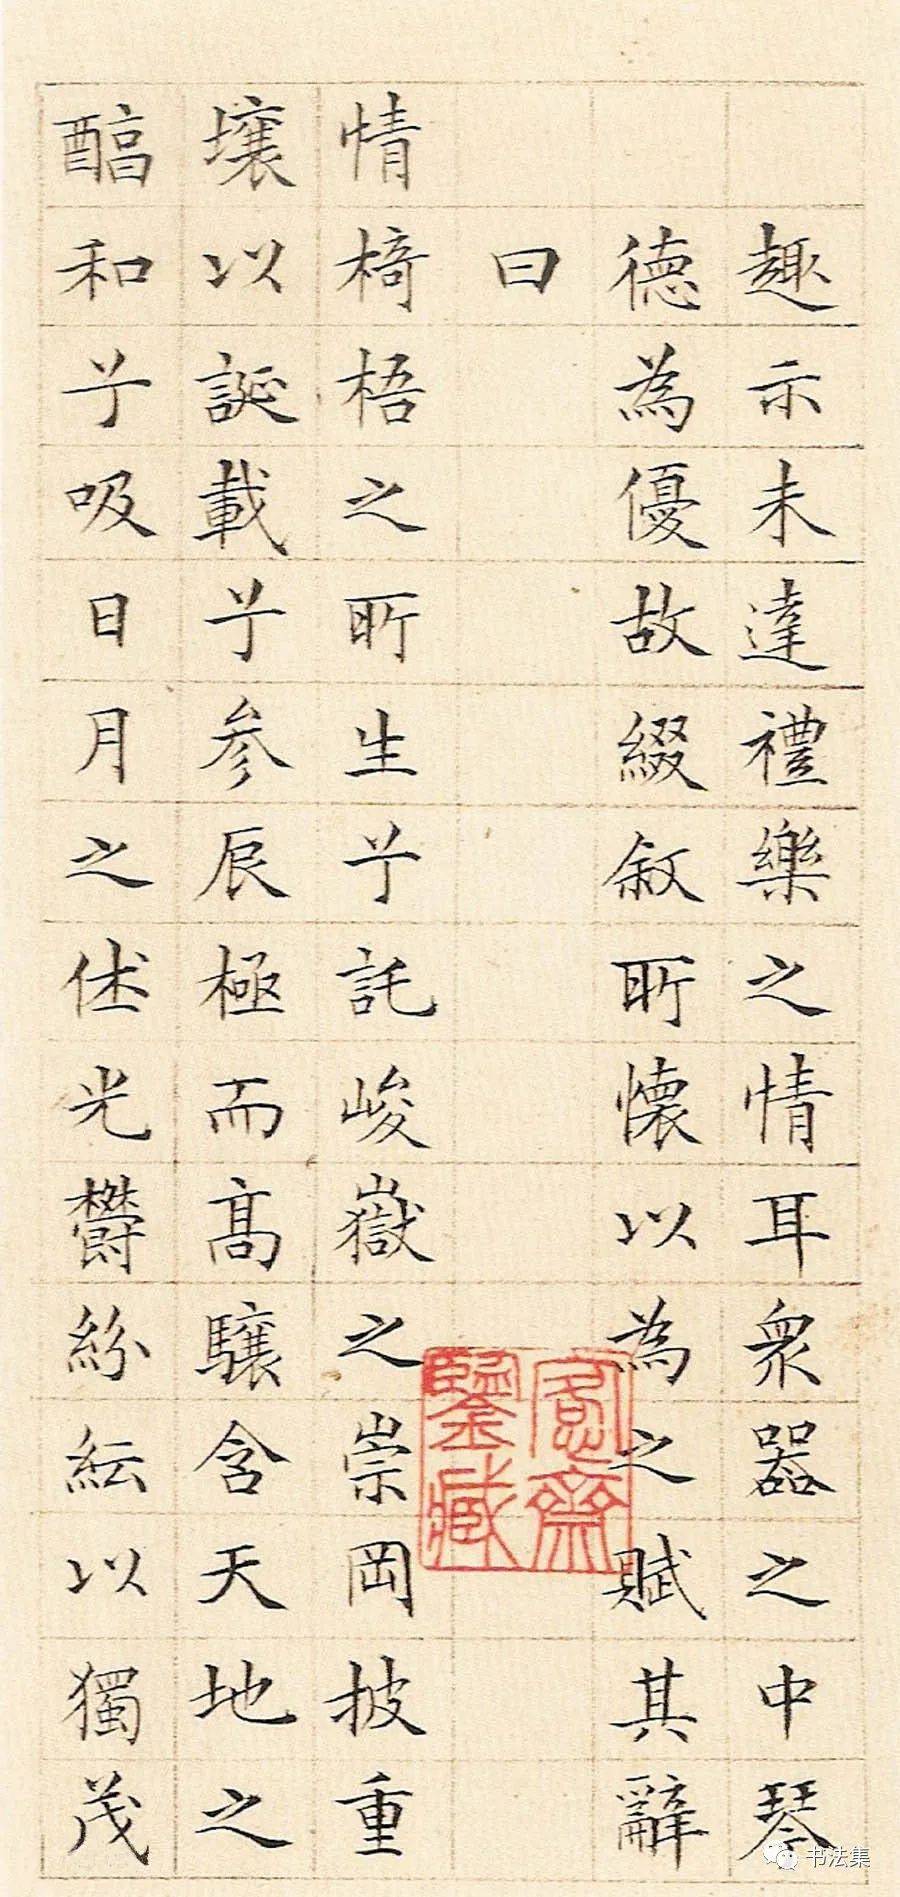 趣亦未達禮樂之情耳衆器之中琴
德為優故綴敘所懷以為之賦其辭
曰
情椅梧之所生兮託峻嶽之崇岡披重
壤以誕載兮參辰極而高驤含天地之
醕和兮吸日月之休光鬱紛紜以獨茂
愙齋鑒藏
书法集